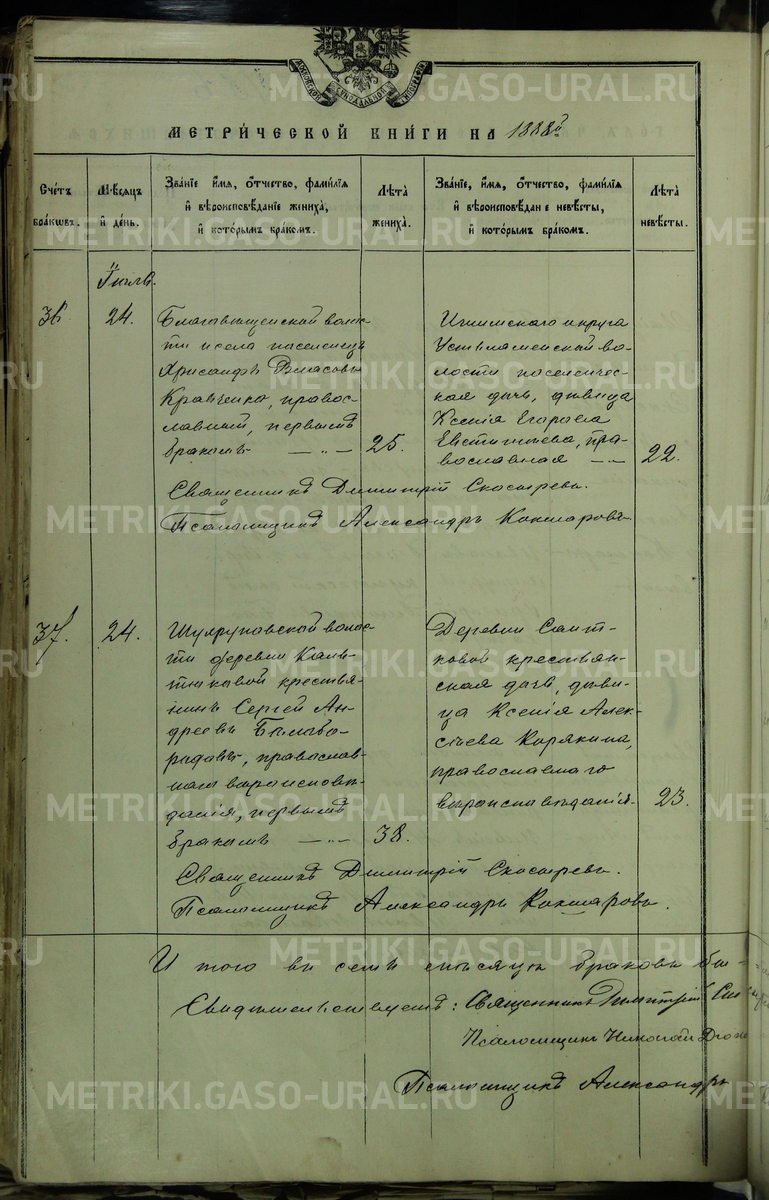 МОСКОВСКОЙ СѴНОДАЛЬНОЙ ТИПОГРАФІИ
МЕТРИ́ЧЕСКОЙ КНИ́ГИ НА 1888 г̃
Сче́тъ бра́кѡвъ.
Мѣ́сѧцъ и҆ де́нь.
Зва́нїе и҆́мѧ, ѻ҆́тчество, фами́лїѧ
и҆ вѣроисповѣ́данїе жениха̀,
и҆ кото́рымъ бра́комъ.
Лѣ́та жениха̀.
Зва́нїе, и҆́мѧ, ѻ҆́тчество, фами́лїѧ
и҆ вѣроисповѣ́дан е невѣ́сты,
и҆ кото́рымъ бра́комъ.
Лѣ́та невѣ́сты.
36
24.
Благовѣщенской волос-
ти и села поселенецъ
Хрисанфъ Власовъ
Кравченко, правос-
лавный, первымъ
бракомъ — „ —
25.
Ишимскаго округа
Устьламенской во-
лости поселенчес-
кая дочь, девица
Ксенія Егорова
Евстигнѣева, пра-
вославная — —
22.
Священникъ Димитрій Скосыревъ.
Псаломщикъ Александръ Кокшаровъ
37.
24.
волос-
ти деревни
крестья-
нинъ Сергей Ан-
дреевъ Бѣлобо-
родовъ, православ-
наго вероисповѣ-
данія, первымъ
бракомъ — „ —
38.
Деревни
крестьян-
ская дочь, деви-
ца Ксенія Алек-
сѣева Корякина,
православнаго
вѣроисповѣданія.
23.
Священникъ Димитрій Скосыревъ.
Псаломщикъ Александръ Кокшаровъ.
И того въ семъ мѣсяцѣ браковъ
Свидѣтельствуемъ: Священникъ Димитрій
Псаломщикъ Николай
Псаломщикъ Александръ
METRIKI.GASO-URAL.RU